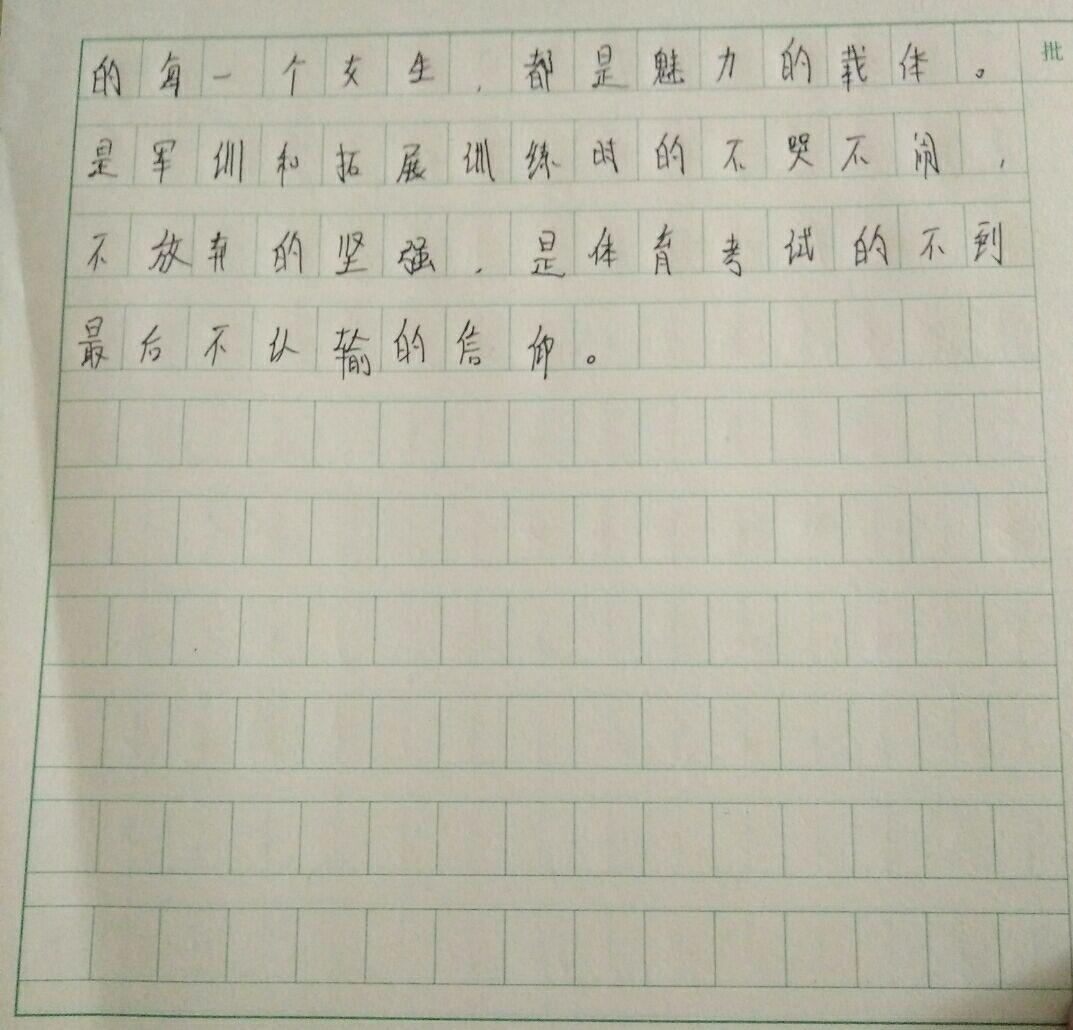 的每一个女生，都是魅力的载体。
批
是军训和拓展训练时的不哭不闹，
不放弃的坚强，是体育考试的不到
最后不认输的信仰。